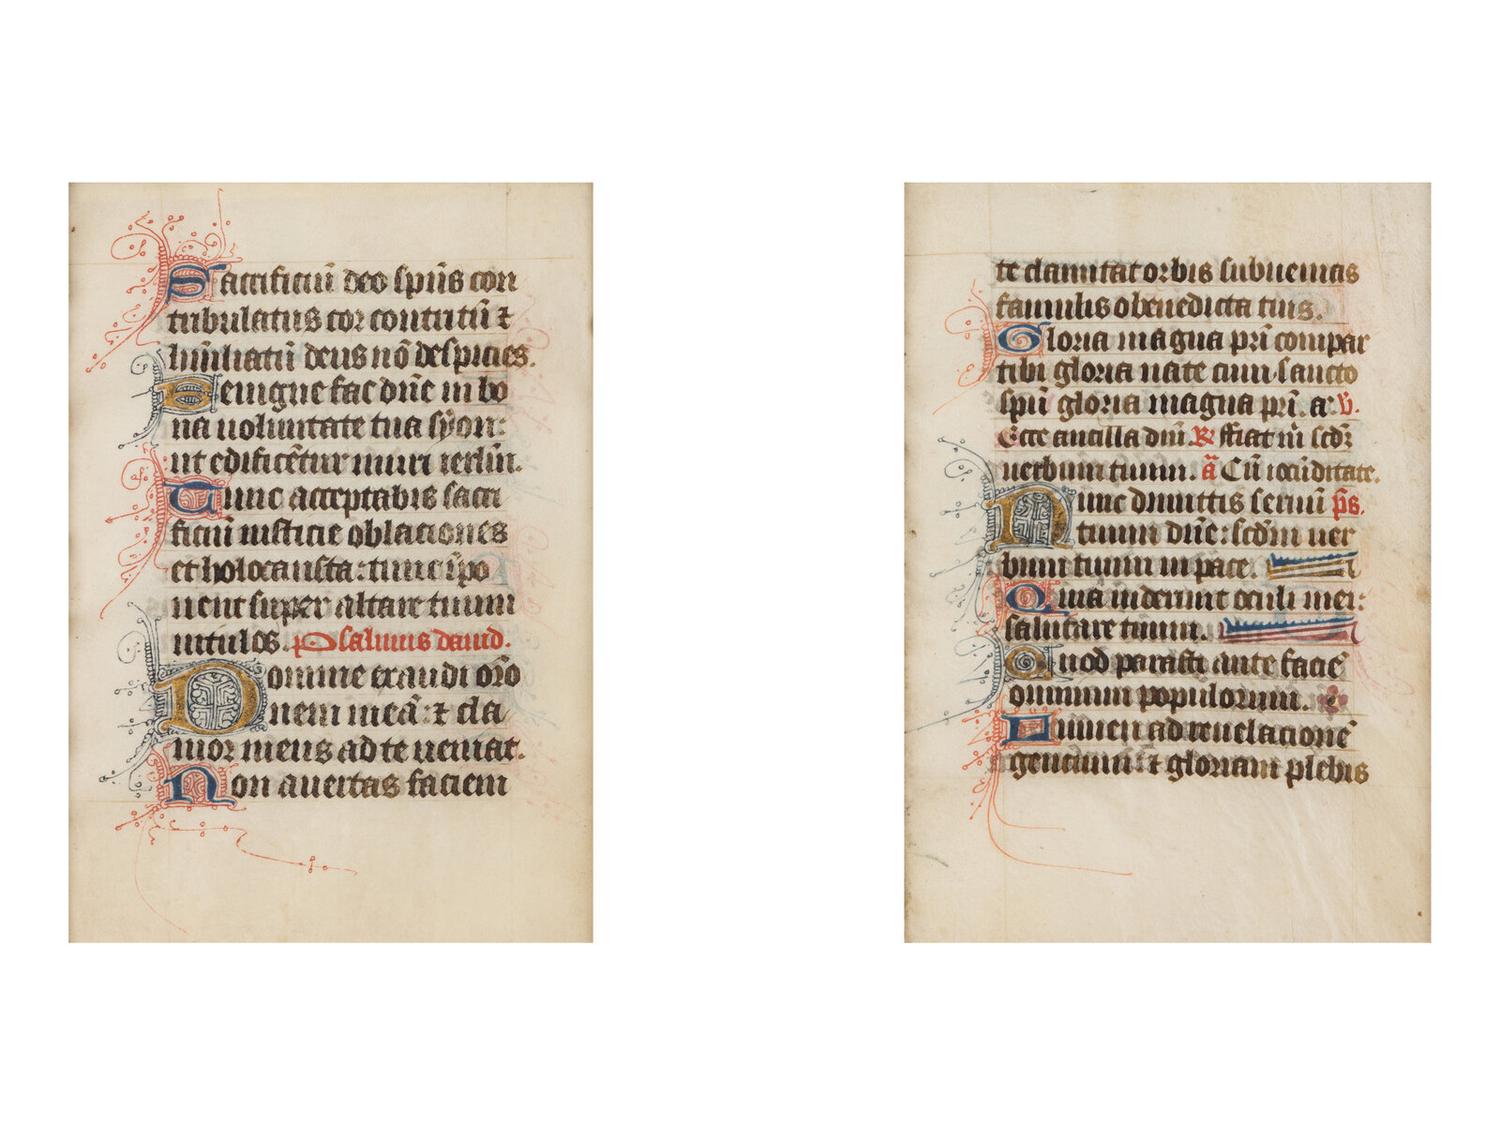 Sacrificiū deo spūs con
tribulatus cor contritū ⁊
humiliatū deus nō despicies.
Benigne fac dn̄e in bo
na uoluntate tua syon:
ut edificētur muri ierlm̄.
Tunc acceptabis sacri
ficiū iusticie oblationes
et holocausta: tunc īpo
nent super altare tuum
uitulos. Psalmus dauid.
Domine exaudi orō
nem meā: ⁊ cla
mor meus ad te ueniat.
Non auertas faciem
te clamitat orbis subuenias
famulis o benedicta tuis.
Gloria magna pr̄i compar
tibi gloria nate cum sancto
spū gloria magna pr̄i. a. v̄.
Ecce ancilla dn̄i. R̄ ffiat m̄ scd̄z
uerbum tuum. ā Cū iocūditate.
Nunc dimittis seruū ps̄.
tuum dn̄e: scd̄m uer
bum tuum in pace.
Quia uiderunt oculi mei:
salutare tuum.
Quod parasti ante facie
omnium populorum.
Lumen ad reuelacionē
gencium: ⁊ gloriam plebis